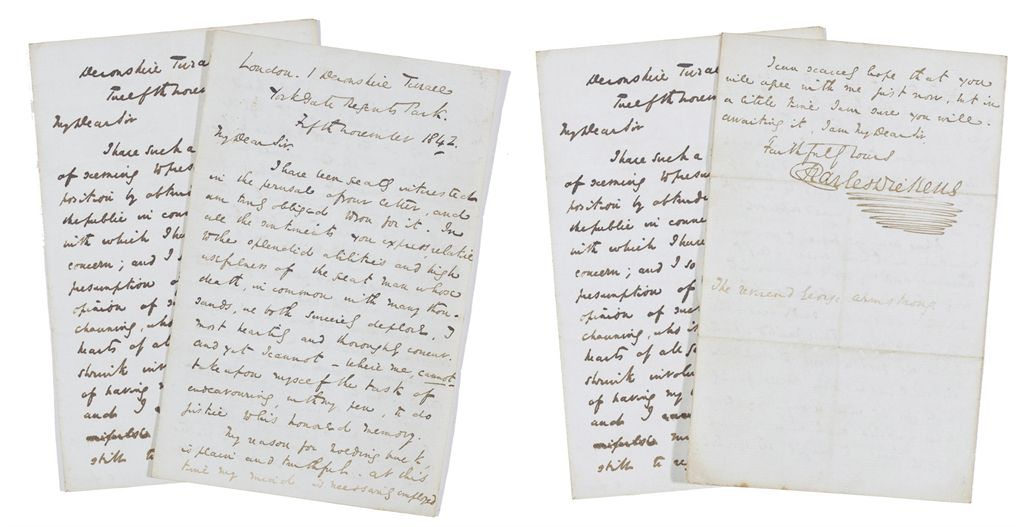 Devonshire Terra
Twelfth Novem
My Dear Sir
I have such a
of seeming to presu
position by obtrud
the public in conn
with which I have
concern; and I so
presumption of
opinion of suc
Channing, who is
hearts of all so
shrink invol
of having my
and I
still to re
London. 1 Devonshire Terrace
York Gate Regents Park.
Fifth November 1842.
My Dear Sir.
I have been greatly interested
in the perusal of your letter, and
am truly obliged to you for it. In
all the sentiments you express, relative
to the splendid abilities and high
usefulness of the great man whose
death, in common with many thou-
sands, we both sincerely deplore, I
most heartily and thoroughly concur.
and yet I cannot – believe me, cannot –
take upon myself the task of
endeavouring, with my pen, to do
justice to his honored memory.
My reason for holding back,
is plain and truthful. At this
time my mind is necessarily employed
Devonshire Terra
Twelfth Novem
My Dear Sir
I have such a
of seeming to presu
position by obtrud
the public in conn
with which I have
concern; and I so
presumption of
opinion of suc
Channing, who is
hearts of all so
shrink involu
of having my
and I
still to re
I can scarcely hope that you
will agree with me just now, but in
a little time I am sure you will.
awaiting it, I am My Dear Sir.
Faithfully Yours
Charles Dickens
The Reverend George Armstrong.